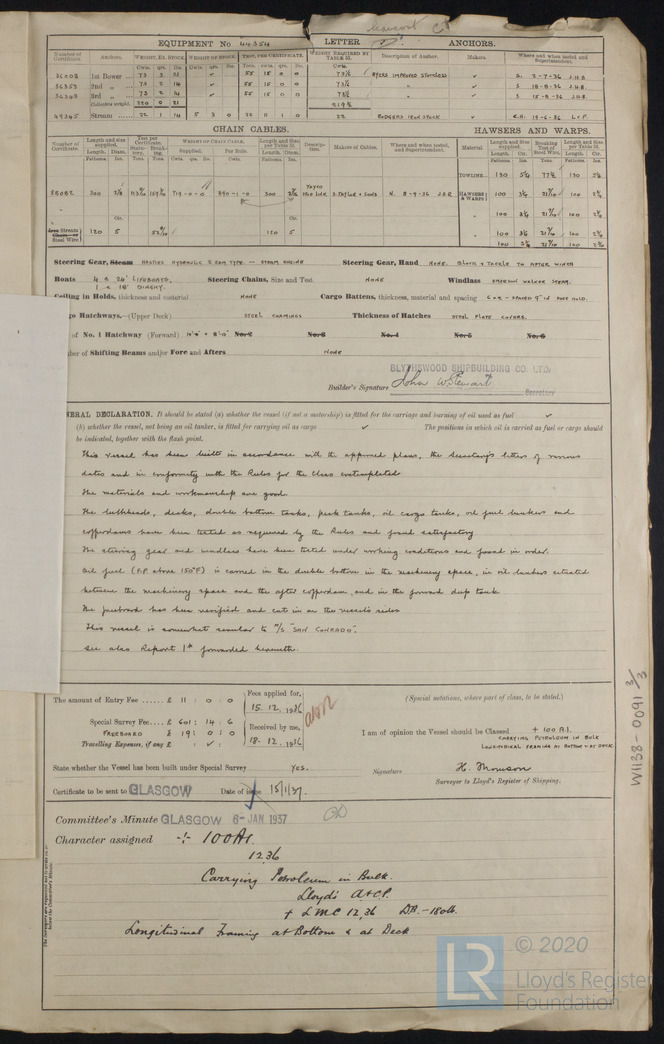 EQUIPMENT No 44354 LETTER ANCHORS.
Number of Certificate. Anchors. WEIGHT, EX. STOCK. WEIGHT OF STOCK. TEST, PER CERTIFICATE. WEIGHT REQUIRED BY TABLE 53. Description of Anchor. Makers. Where and when tested and Superintendent.
Cwts. qrs. lbs. Cwts. qrs. lbs. Tons. cwts. qrs. lbs. Cwts.
1st Bower 73 3 21 55 15 0 0 73½ BYERS IMPROVED STOCKLESS S. 2-7-36 J.H.B.
2nd 73 2 14 55 15 0 0 73½ S 18-8-36 J.H.B.
3rd 73 2 14 55 15 0 0 S 15-8-36 J.H.B.
Collective weight. 220 0 21
Stream 22 1 14 5 3 0 22 11 1 0 22 RODGERS IRON STOCK C.H. 19-6-36
CHAIN CABLES. HAWSERS AND WARPS.
Number of Certificate. Length and size supplied. Test per Certificate. WEIGHT OF CHAIN CABLE. Length and Size per Table 53. Description. Makers of Cables. Where and when tested, and Superintendent. Material Length and Size supplied. Breaking Test of Steel Wire. Length and Size per Table 53.
Supplied. Per Rule.
TOWLINE 130 5¼ 77½ 130 5¼
300 719-0-0 690-1-0 300 TAYCO S. TAYLOR & SONS N. 8-9-36 J.D.R HAWSERS & WARPS 100 100
100 100
(Stream Steel Wire) 120 5 120 5 100 100
100 100
Steering Gear, Steam HASTIES HYDRAULIC 2 RAM TYPE - STEAM ENGINE Steering Gear, Hand NONE. BLOCK & TACKLE TO AFTER WINCH
Boats 4 @ 26' LIFEBOATS, Steering Chains, Size and Test NONE Windlass EMERSON WALKER STEAM.
1 @ 18' DINGHY.
Ceiling in Holds, thickness and material NONE Cargo Battens, thickness, material and spacing 6 x 2 - SPACED 9" IN FORE HOLD.
Hatchways.-(Upper Deck) STEEL COAMINGS Thickness of Hatches STEEL PLATE COVERS.
of No. 1 Hatchway (Forward) No. 2 No. 3 No. 4 No. 5 No. 6
ber of Shifting Beams and/or Fore and Afters NONE
BLYTHSWOOD SHIPBUILDING CO. LTD.
Builder's Signature John W Stewart
Secretary
NERAL DECLARATION. It should be stated (a) whether the vessel (if not a motorship) is fitted for the carriage and burning of oil used as fuel
(b) whether the vessel, not being an oil tanker, is fitted for carrying oil as cargo The positions in which oil is carried as fuel or cargo should
be indicated, together with the flash point.
This vessel has been built in accordance with the approved plans, the Secretary's letters of various
dates and in conformity with the Rules for the class contemplated
The materials and workmanship are good.
The bulkheads, decks, double bottom tanks, peak tanks, oil cargo tanks, oil fuel bunkers and
cofferdams have been tested as required by the Rules and found satisfactory
The steering gear and windlass have been tested under working conditions and found in order.
Oil fuel (F.P. above 150°F) is carried in the double bottom in the machinery space, in oil bunkers situated
between the machinery space and the after cofferdam, and in the forward deep tank
The freeboard has been verified and cut in on the vessel's sides
This vessel is somewhat similar to M/S "SAN CONRADO".
See also Report 1* forwarded herewith.
The amount of Entry Fee £ 11 : 0 : 0 Fees applied for, 15.12.1936 (Special notations, where part of class, to be stated.)
Special Survey Fee £ 601 : 14 : 6
FREEBOARD £ 19 : 0 : 0 Received by me, 18.12.1936 I am of opinion the Vessel should be Classed + 100 A.1.
Travelling Expenses, if any £ CARRYING PETROLEUM IN BULK
LONGITUDINAL FRAMING AT BOTTOM & AT DECK
State whether the Vessel has been built under Special Survey YES. Signature H. Thomson
Surveyor to Lloyd's Register of Shipping.
Certificate to be sent to GLASGOW Date of issue 15/1/37.
Committee's Minute GLASGOW 6-JAN 1937
Character assigned + 100A1.
12.36
Carrying Petroleum in Bulk.
Lloyd's A&CP.
+ LMC 12,36 DB.-180lb.
Longitudinal Framing at Bottom & at Deck
W1138-0091 3/3
LR
© 2020
Lloyd's Register
Foundation